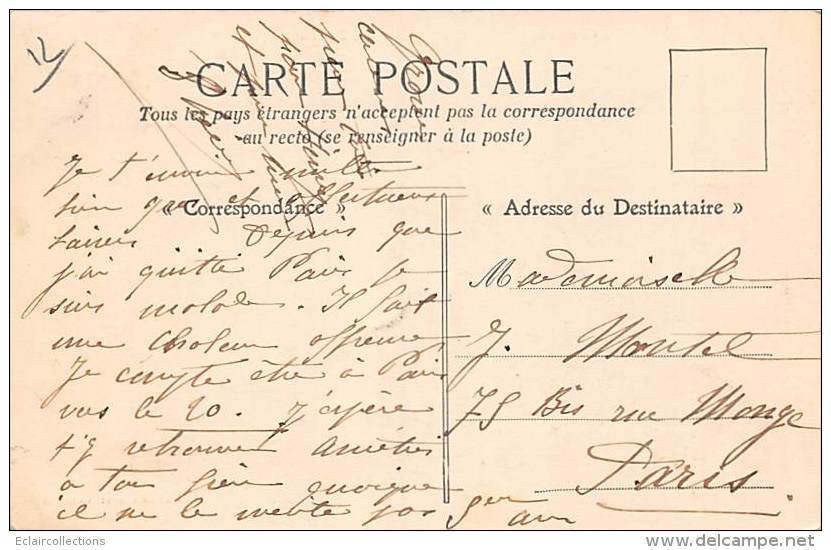 12
CARTE POSTALE
Tous les pays étrangers n'acceptent pas la correspondance
au recto (se renseigner à la poste)
« Correspondance »
Je t'envoie mille
bien gros et affectueux
baisers Depuis que
j'ai quitté Paris je
suis malade. Il fait
une chaleur affreuse
Je compte être à Paris
vers le 20. J'espère
t'y retrouver Amitiés
à ton frère quoique
il ne le mérite pas
« Adresse du Destinataire »
Mademoiselle
J. Montel
75 Bis rue Monge
Paris
5er arr
Eclaircollections
www.delcampe.net